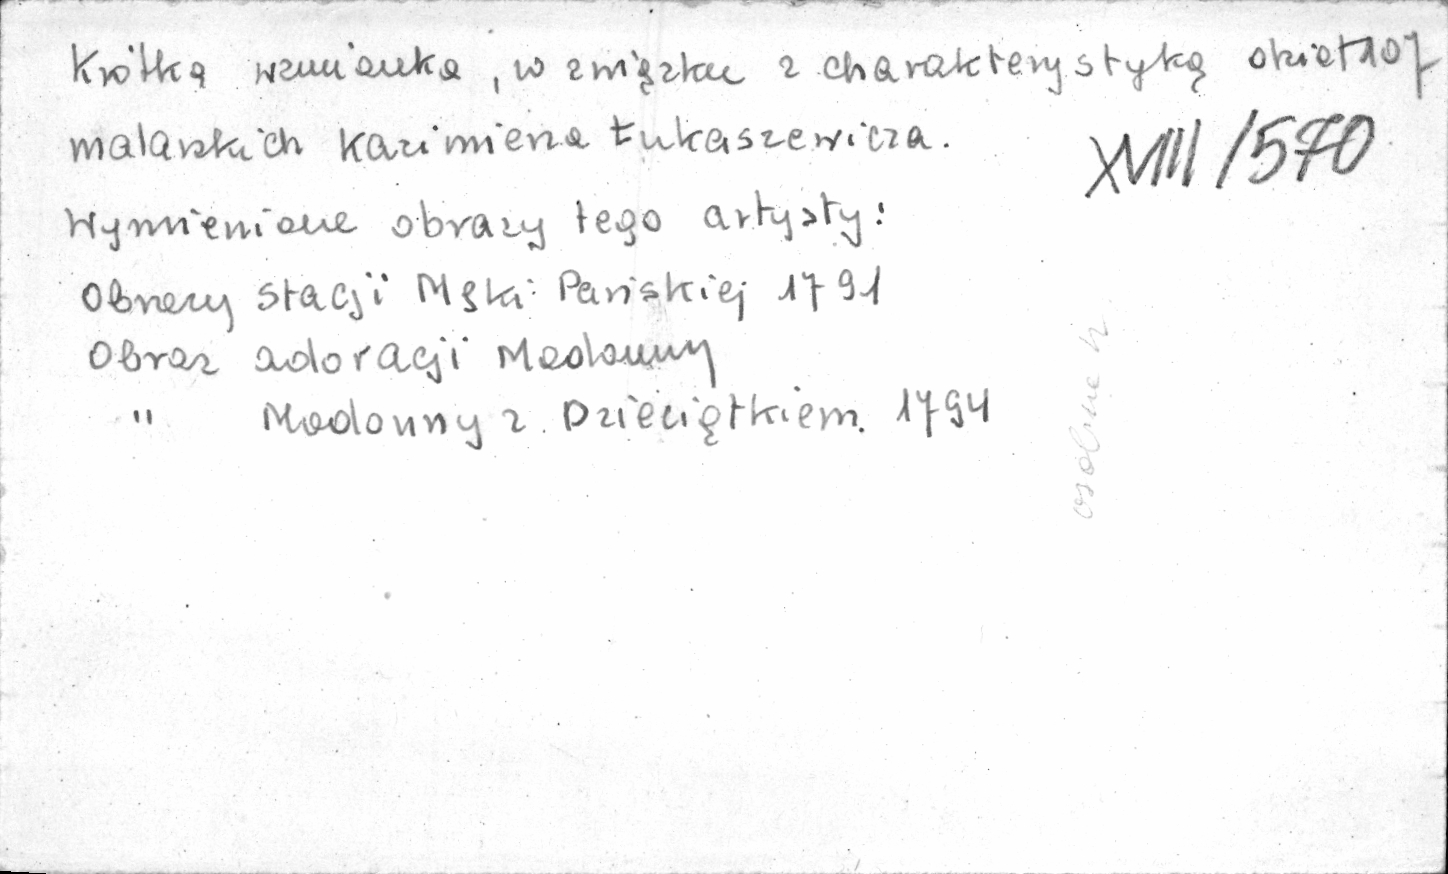 Krótka wzmianka, w związku z charakterystyką dzieł
malarskich Kazimierza Łukaszewicza.
XVIII/570
Wymienione obrazy tego artysty:
Obrazy stacji Męki Pańskiej 1791
Obraz adoracji Madonny
" Madonny z Dzieciątkiem. 1794